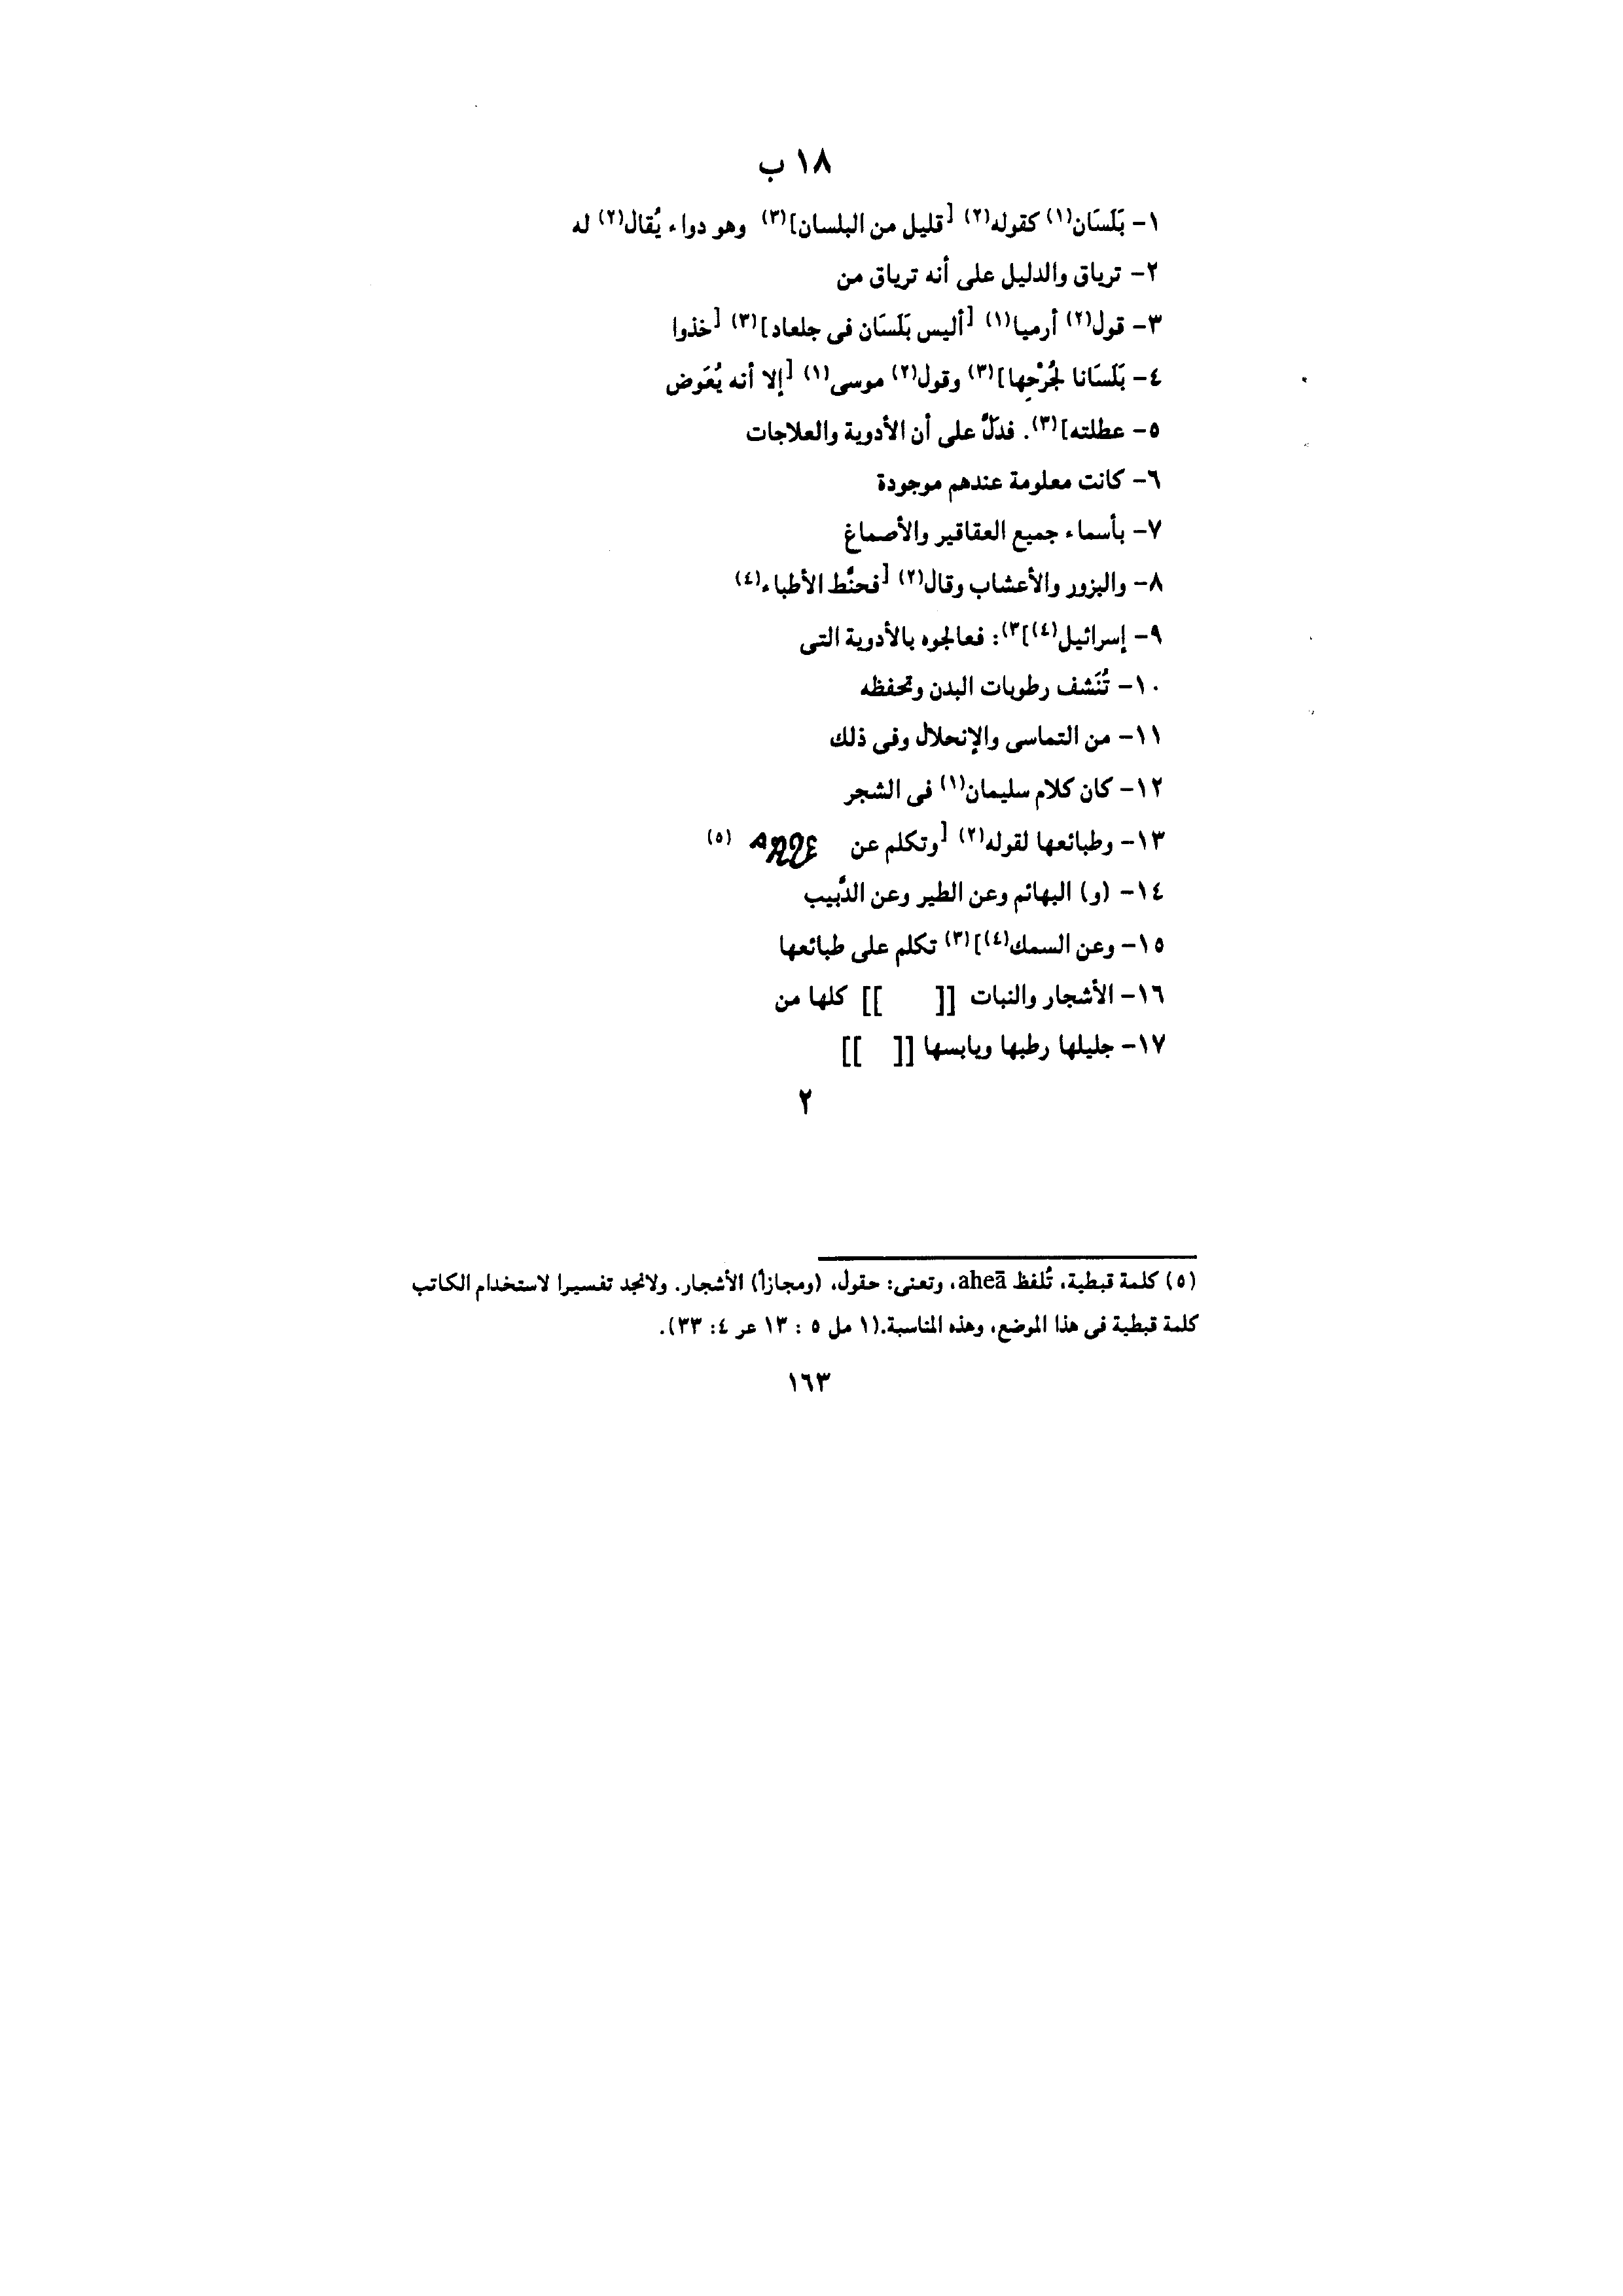 ١٨ ب
١- بَلَسَان(١) كقوله(٢) [قليل من البلسان](٣) وهو دواء يُقال(٢) له
٢- ترياق والدليل على أنه ترياق من
٣- قول(٢) أرميا(١) [أليس بَلَسَان فى جلعاد](٣) [خذوا
٤- بَلَسَانا لجُرْحِها](٣) وقول(٢) موسى(١) [إلا أنه يُعَوض
٥- عطلته](٣). فدَلَّ على أن الأدوية والعلاجات
٦- كانت معلومة عندهم موجودة
٧- بأسماء جميع العقاقير والأصماغ
٨- والبزور والأعشاب وقال(٢) [فحنَّط الأطباء(٤)
٩- إسرائيل(٤)]٣): فعالجوه بالأدوية التى
١٠- تُنَشف رطوبات البدن وتحفظه
١١- من التماسى والإنحلال وفى ذلك
١٢- كان كلام سليمان(١) فى الشجر
١٣- وطبائعها لقوله(٢) [وتكلم عن (٥)
١٤- (و) البهائم وعن الطير وعن الدَّبيب
١٥- وعن السمك(٤)](٣) تكلم على طبائعها
١٦- الأشجار والنبات [[ ]] كلها من
١٧- جليلها رطبها ويابسها [[ ]]
٢
(٥) كلمة قبطية، تُلفظ aheā، وتعنى: حقول، (ومجازاً) الأشجار. ولانجد تفسيرا لاستخدام الكاتب
كلمة قبطية فى هذا الموضع، وهذه المناسبة.(١ مل ٥ : ١٣ عر ٤: ٣٣).
١٦٣